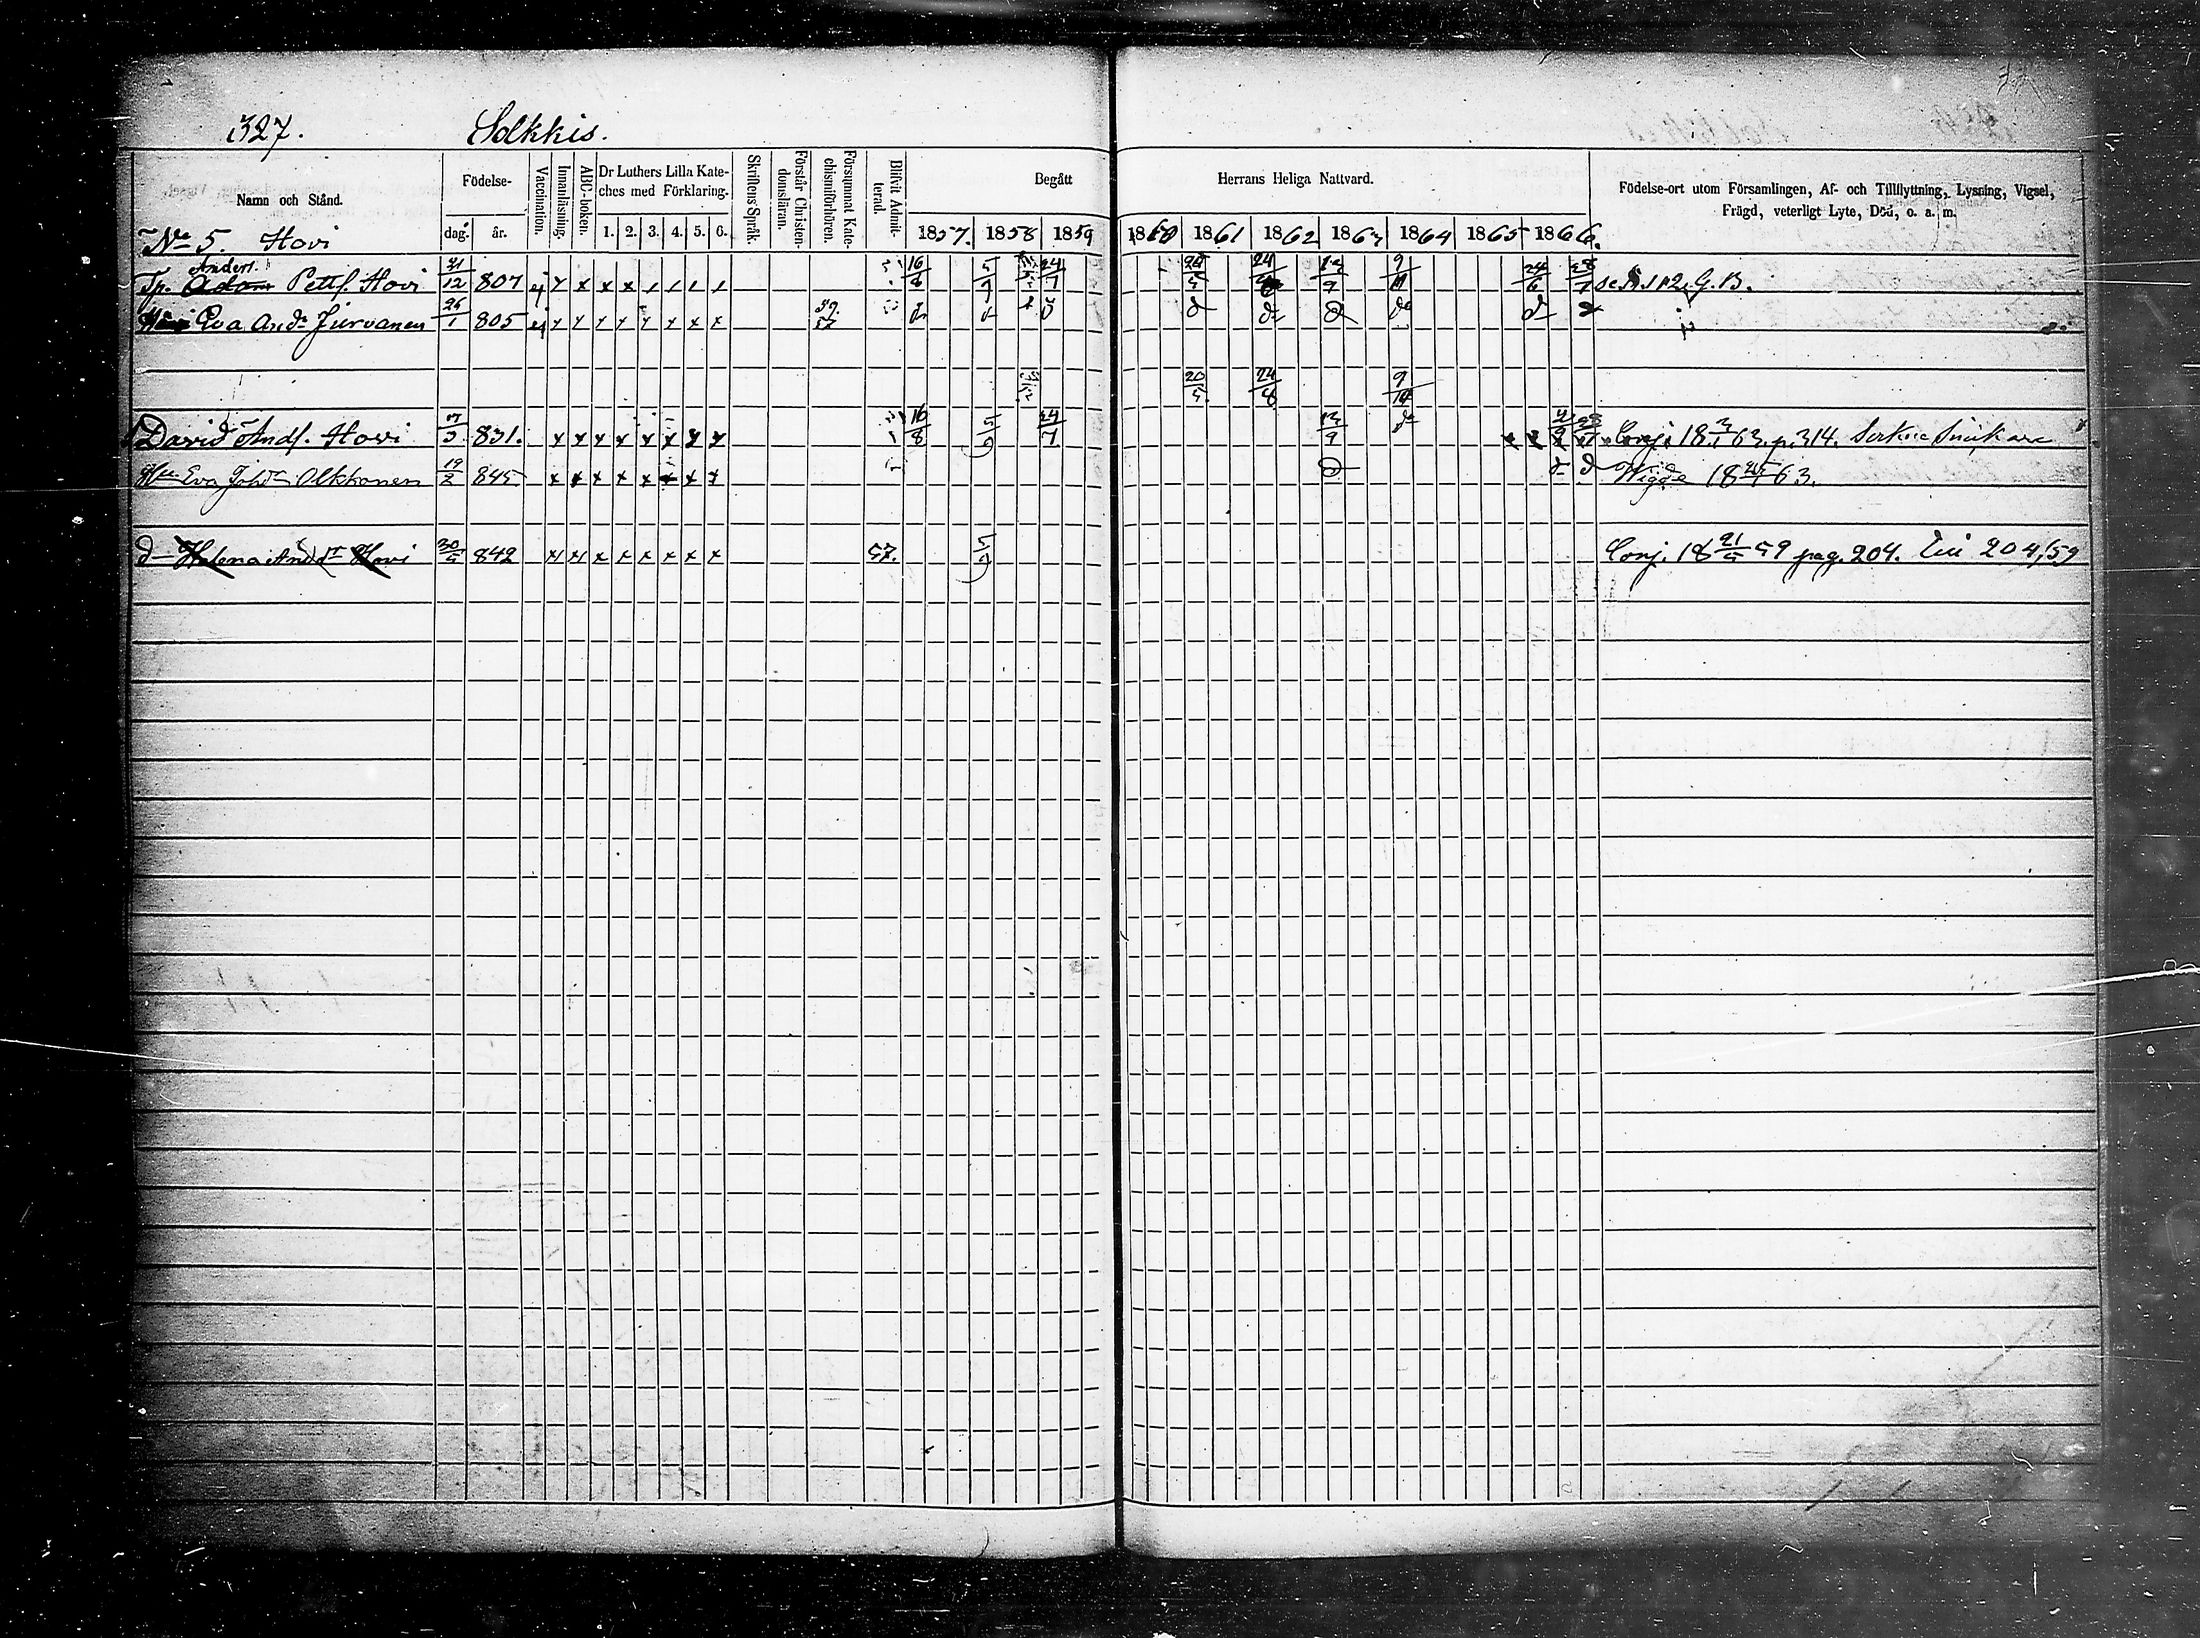 327. Solkkis.
Namn och Stånd. Födelse- dag. år. Vaccination. Innanläsning. ABC-boken. Dr Luthers Lilla Kateches med Förklaring. 1. 2. 3. 4. 5. 6. Skriftens Språk. Förstår Christendomsläran. Försummat Katechismiförhören. Blifvit Admitterad. Begått Herrans Heliga Nattvard. Födelse-ort utom Församlingen, Af- och Tillflyttning, Lysning, Vigsel, Frägd, veterligt Lyte, Död, o. a. m.
1857. 1858 1859 1860 1861 1862 1863 1864 1865 1866.
No 5. Hovi
Anders.
Tp. Adam Petts. Hovi 21/12 807 ej x x x x 16/8 5/9 24/7 24/5 24/8 13/9 9/ 24/6 28/7 G. B.
Eva Andr Jurvanen 26/1 805 ej x x x x x x x x 57 d d d d d d d d d
20/5 24/8 9/
David Ands. Hovi /3 831. x x x x x x x x 16/8 5/9 24/7 13/9 d Conj. 18 63. p. 314.
Hu. Eva Johdr Olkkonen 19/2 845. x x x x x x x x d d d Wigde 18 63.
d Helena Andsdr Hovi 30/5 842 x x x x x x x x 57. 5/9 Conj. 18 21/5 59 pag. 204. 204/59